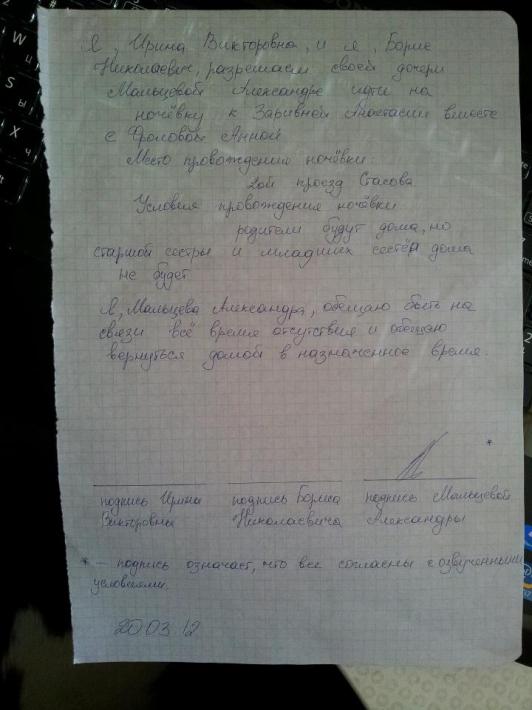 Я, Ирина Викторовна, и я, Борис
Николаевич, разрешаем своей дочери
Мальцевой Александре идти на
ночёвку к Заривной Анастасии вместе
с Фроловой Анной
Место провождения ночёвки:
2ой проезд Стасова
Условия провождения ночёвки
родители будут дома, но
старшой сестры и младших сестёр дома
не будет
Я, Мальцева Александра, обещаю быть на
связи всё время отсутствия и обещаю
вернуться домой в назначенное время.
*
подпись Ирины Викторовны
подпись Бориса Николаевича
подпись Мальцевой Александры
* – подпись означает, что все согласны с озвученными
условиями.
20 03 12